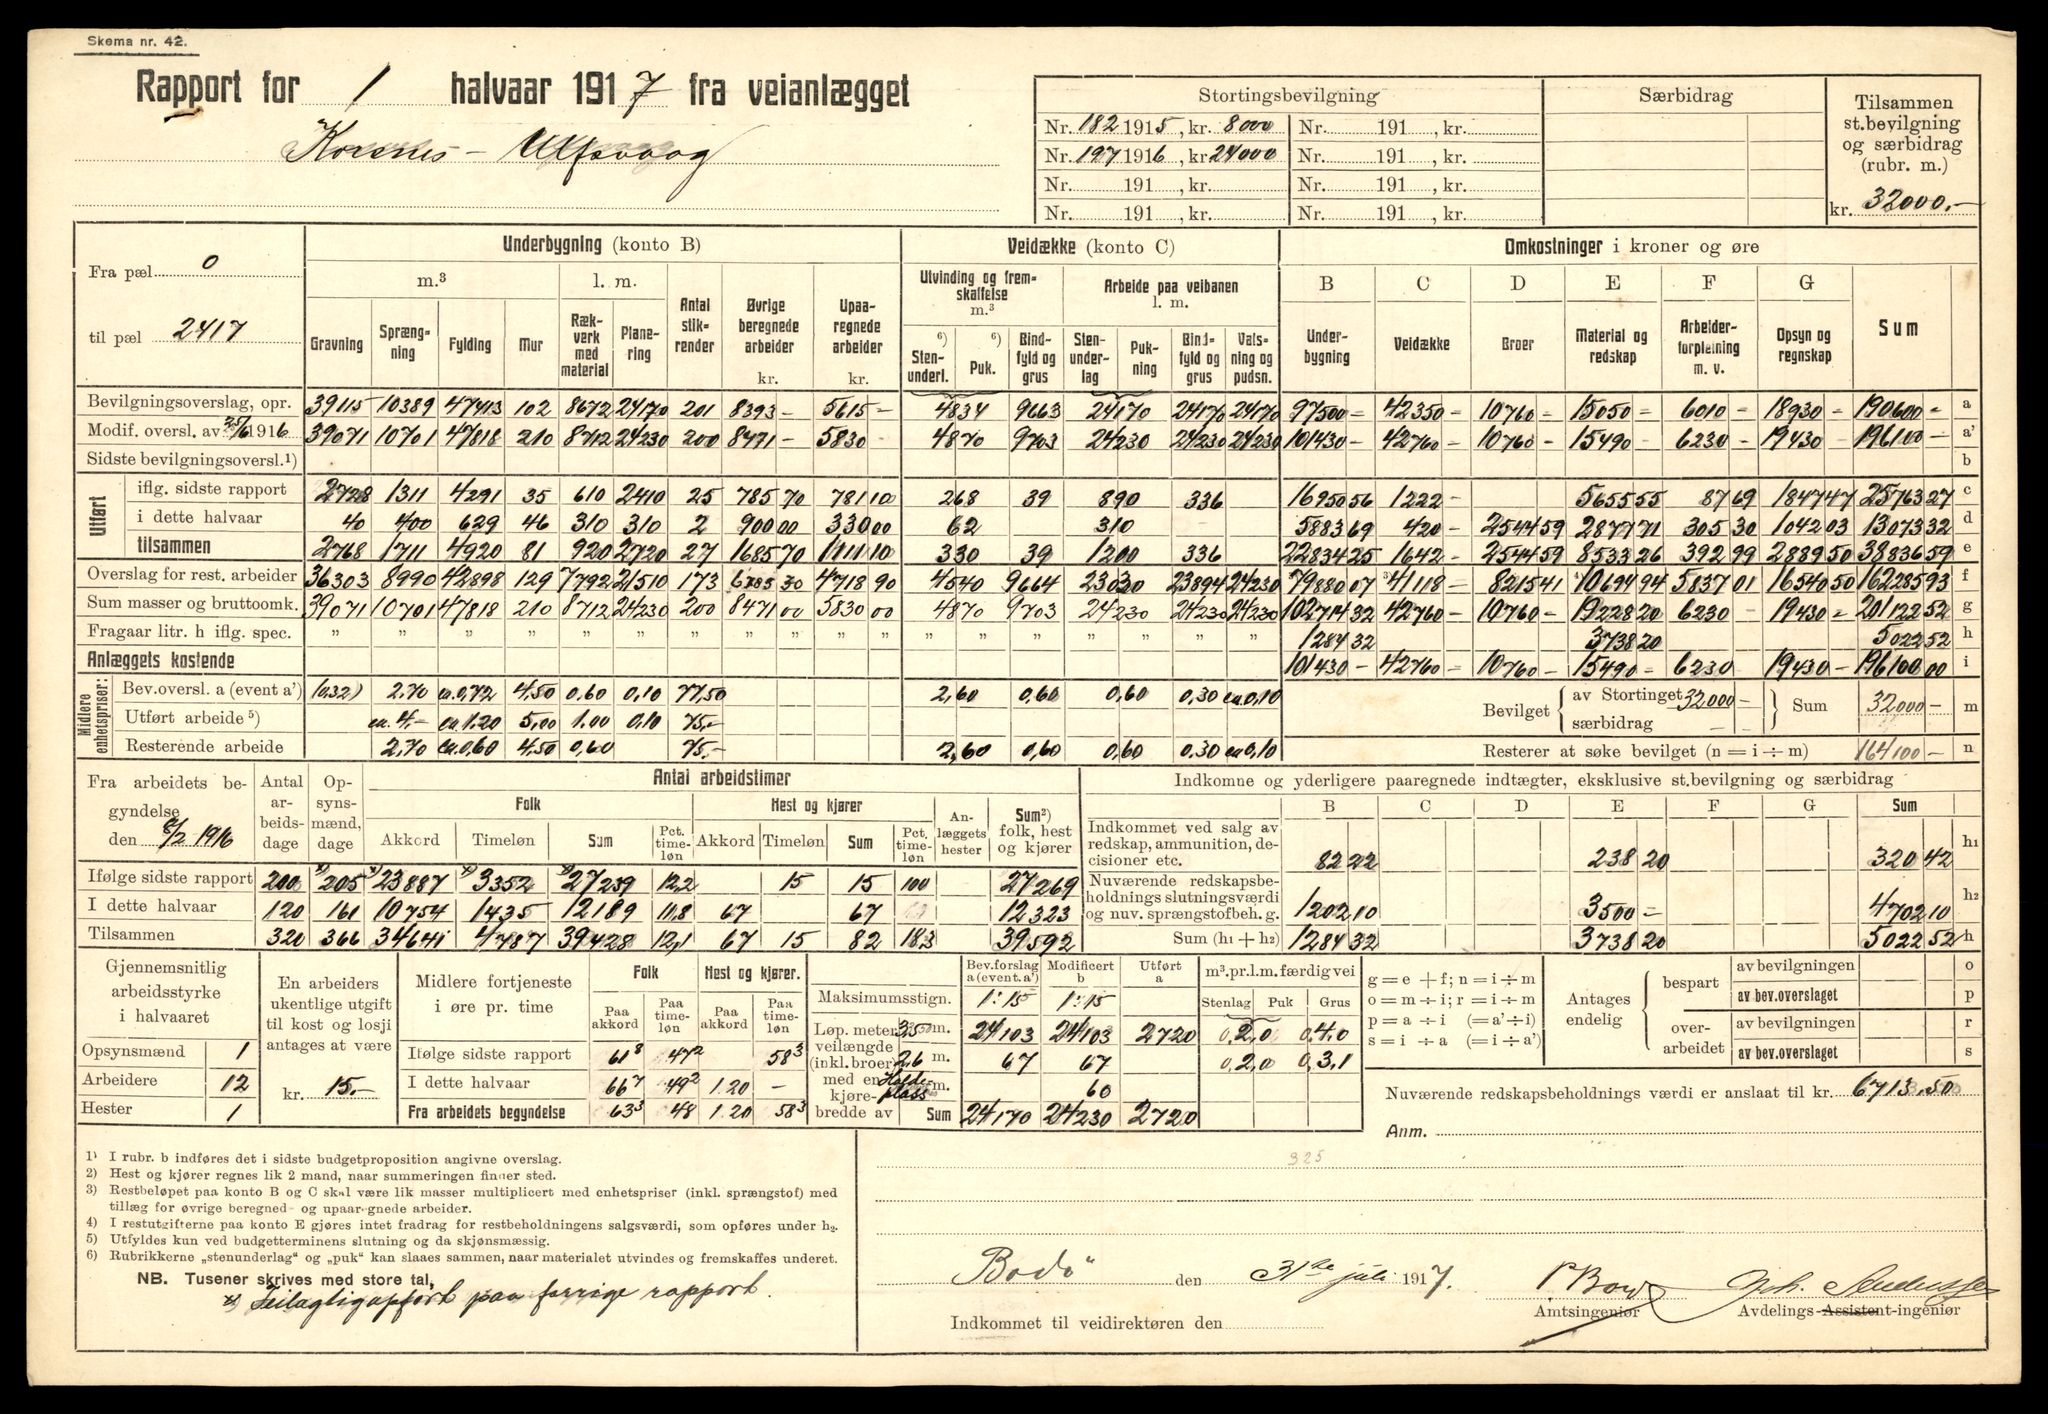 Skema nr. 42.
Rapport for 1 halvaar 1917 fra veianlægget
Korsnes - Ulfsvaag
Stortingsbevilgning Særbidrag Tilsammen st.bevilgning og særbidrag (rubr. m.)
Nr. 182 1915, kr. 8000 Nr. 191 , kr.
Nr. 197 1916, kr. 24000 Nr. 191 , kr.
Nr. 191 , kr. Nr. 191 , kr.
Nr. 191 , kr. Nr. 191 , kr. kr. 32000.-
Fra pæl 0
til pæl 2417
Underbygning (konto B) Veidække (konto C) Omkostninger i kroner og øre
m.3 l. m. Antal stikrender Øvrige beregnede arbeider kr. Upaaregnede arbeider kr.
Gravning Sprængning Fylding Mur Rækverk med material Planering
Utvinding og fremskaffelse m.3 Arbeide paa veibanen l. m.
6) Stenunderl. 6) Puk. Bindfyld og grus Stenunderlag Pukning Bindfyld og grus Valsning og pudsn.
B C D E F G Sum
Underbygning Veidække Broer Material og redskap Arbeiderforpleining m. v. Opsyn og regnskap
Bevilgningsoverslag, opr. 39115 10389 47413 102 8672 24170 201 8393 - 5615 - 4834 9663 24170 24170 24170 97500 - 42350 - 10760 - 15050 - 6010 - 18930 - 190600 - a
Modif. oversl. av 25/6 1916 39071 10701 47818 210 8712 24230 200 8471 - 5830 - 4870 9703 24230 24230 24230 101430 - 42760 - 10760 - 15490 - 6230 - 19430 - 196100 - a'
Sidste bevilgningsoversl.1) b
Utført
iflg. sidste rapport 2728 1311 4291 35 610 2410 25 785 70 781 10 268 39 890 336 16950 56 1222 - 5655 55 87 69 1847 47 25763 27 c
i dette halvaar 40 400 629 46 310 310 2 900 00 330 00 62 310 5883 69 420 - 2544 59 2877 71 305 30 1042 03 13073 32 d
tilsammen 2768 1711 4920 81 920 2720 27 1685 70 1111 10 330 39 1200 336 22834 25 1642 - 2544 59 8533 26 392 99 2889 50 38836 59 e
Overslag for rest. arbeider 36303 8990 42898 129 7792 21510 173 6785 30 4718 90 4540 9664 23030 23894 24230 79880 07 41118 - 8215 41 10694 94 5837 01 16540 50 162285 93 f
Sum masser og bruttoomk. 39071 10701 47818 210 8712 24230 200 8471 00 5830 00 4870 9703 24230 24230 24230 102714 32 42760 - 10760 - 19228 20 6230 - 19430 - 201122 52 g
Fragaar litr. h iflg. spec. " " " " " " " " " " " " " " " " " " 1284 32 3738 20 5022 52 h
Anlæggets kostende 101430 - 42760 - 10760 - 15490 - 6230 19430 - 196100 00 i
Midlere enhetspriser:
Bev.oversl. a (event a') (0.32) 2.70 ca.0.72 4.50 0.60 0.10 77.50 2,60 0,60 0,60 0,30 ca.0,10
Utført arbeide 5) ca. 4.- ca 1.20 5,00 1.00 0,10 75.-
Resterende arbeide 2.70 ca.0,60 4.50 0,60 75.- 2,60 0,60 0,60 0,30 ca.0,10
Bevilget av Stortinget 32000 - særbidrag - Sum 32000 - m
Resterer at søke bevilget (n = i ÷ m) 164100 - n
Fra arbeidets begyndelse den 8/2 1916
Antal arbeidsdage Opsynsmænd, dage
Antal arbeidstimer
Folk Hest og kjører Anlæggets hester Sum2) folk, hest og kjører
Akkord Timeløn Sum Pct. timeløn Akkord Timeløn Sum Pct. timeløn
Ifølge sidste rapport 200 x) 205 x) 23887 x) 3352 x) 27239 12,2 15 15 100 27269
I dette halvaar 120 161 10754 1435 12189 11,8 67 67 12323
Tilsammen 320 366 34641 4787 39428 12,1 67 15 82 18.3 39592
Indkomne og yderligere paaregnede indtægter, eksklusive st.bevilgning og særbidrag
B C D E F G Sum
Indkommet ved salg av redskap, ammunition, decisioner etc. 82 22 238 20 320 42 h1
Nuværende redskapsbeholdnings slutningsværdi og nuv. sprængstofbeh. g. 1202 10 3500 - 4702 10 h2
Sum (h1 + h2) 1284 32 3738 20 5022 52 h
Gjennemsnitlig arbeidsstyrke i halvaaret
Opsynsmænd 1
Arbeidere 12
Hester 1
En arbeiders ukentlige utgift til kost og losji antages at være
kr. 15.-
Midlere fortjeneste i øre pr. time
Folk Hest og kjører.
Paa akkord Paa timeløn Paa akkord Paa timeløn
Ifølge sidste rapport 61 8 47 2 58 3
I dette halvaar 66 7 49 2 1.20 -
Fra arbeidets begyndelse 63 3 48 1.20 58 3
Bev.forslag a (event. a') Modificert b Utført a m3.pr.l.m.færdig vei
Stenlag Puk Grus
Maksimumsstign. 1:15 1:15
Løp. meter veilængde (inkl. broer) med en kjørebredde av
3.50 m. 24103 24103 2720 0,2,0 0,4,0
2.6 m. 67 67 0,2,0 0,3,1
Holdeplass m. 60
Sum 24170 24230 2720
g = e + f; n = i ÷ m
o = m ÷ i; r = i ÷ m
p = a ÷ i (= a' ÷ i)
s = i ÷ a (= i ÷ a')
Antages endelig
bespart av bevilgningen o
av bev.overslaget p
overarbeidet av bevilgningen r
av bev.overslaget s
Nuværende redskapsbeholdnings værdi er anslaat til kr. 6713.50
Anm.
325
1) I rubr. b indføres det i sidste budgetproposition angivne overslag.
2) Hest og kjører regnes lik 2 mand, naar summeringen finder sted.
3) Restbeløpet paa konto B og C skal være lik masser multiplicert med enhetspriser (inkl. sprængstof) med
tillæg for øvrige beregned- og upaaregnede arbeider.
4) I restutgifterne paa konto E gjøres intet fradrag for restbeholdningens salgsværdi, som opføres under h2.
5) Utfyldes kun ved budgetterminens slutning og da skjønsmæssig.
6) Rubrikkerne „stenunderlag" og „puk" kan slaaes sammen, naar materialet utvindes og fremskaffes underet.
NB. Tusener skrives med store tal.
x) Feilagtig opført paa forrige rapport.
Bodø den 31te juli 1917.
Amtsingeniør Avdelings-Assistent-ingeniør
Indkommet til veidirektøren den